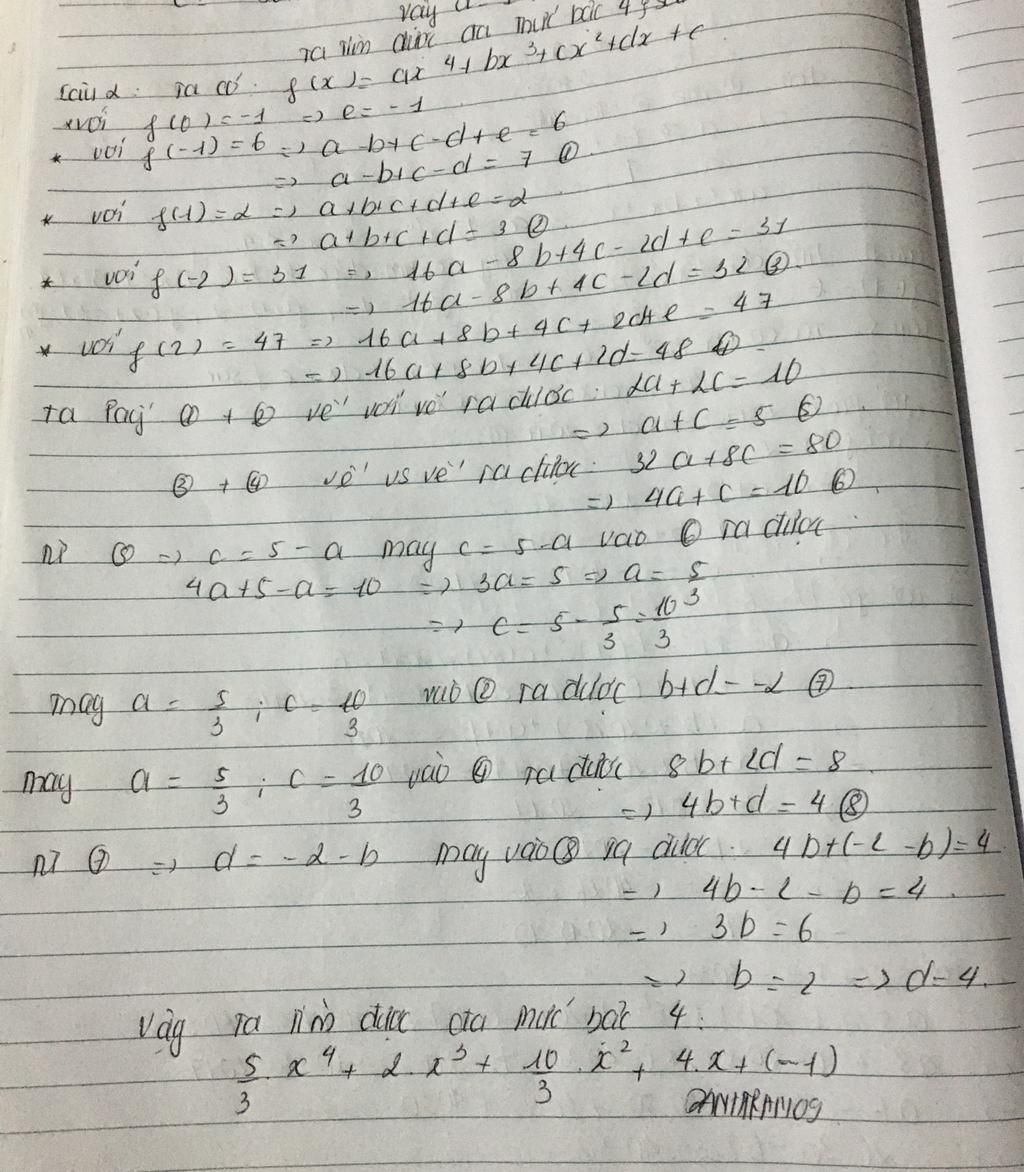 vậy a
Ta tìm được đa thức bậc 4
Câu 2: Ta có: f(x) = ax⁴ + bx³ + cx² + dx + e
* với f(0) = -1 => e = -1
* với f(-1) = 6 => a - b + c - d + e = 6
=> a - b + c - d = 7 ①
* với f(1) = 2 => a + b + c + d + e = 2
=> a + b + c + d = 3 ②
* với f(-2) = 31 => 16a - 8b + 4c - 2d + e = 31
=> 16a - 8b + 4c - 2d = 32 ③
* với f(2) = 47 => 16a + 8b + 4c + 2d + e = 47
=> 16a + 8b + 4c + 2d = 48 ④
Ta lấy ① + ② vế với vế ta được: 2a + 2c = 10
=> a + c = 5 ⑤
③ + ④ vế vs vế ta được: 32a + 8c = 80
=> 4a + c = 10 ⑥
Từ ⑤ => c = 5 - a thay c = 5 - a vào ⑥ ta được
4a + 5 - a = 10 => 3a = 5 => a = 5/3
=> c = 5 - 5/3 = 10/3
Thay a = 5/3 ; c = 10/3 vào ② ta được b + d = -2 ⑦
Thay a = 5/3 ; c = 10/3 vào ④ ta được 8b + 2d = 8
=> 4b + d = 4 ⑧
Từ ⑦ => d = -2 - b thay vào ⑧ ta được: 4b + (-2 - b) = 4
=> 4b - 2 - b = 4
=> 3b = 6
=> b = 2 => d = 4.
Vậy ta tìm được đa thức bậc 4:
5/3 x⁴ + 2.x³ + 10/3 .x² + 4.x + (-1)